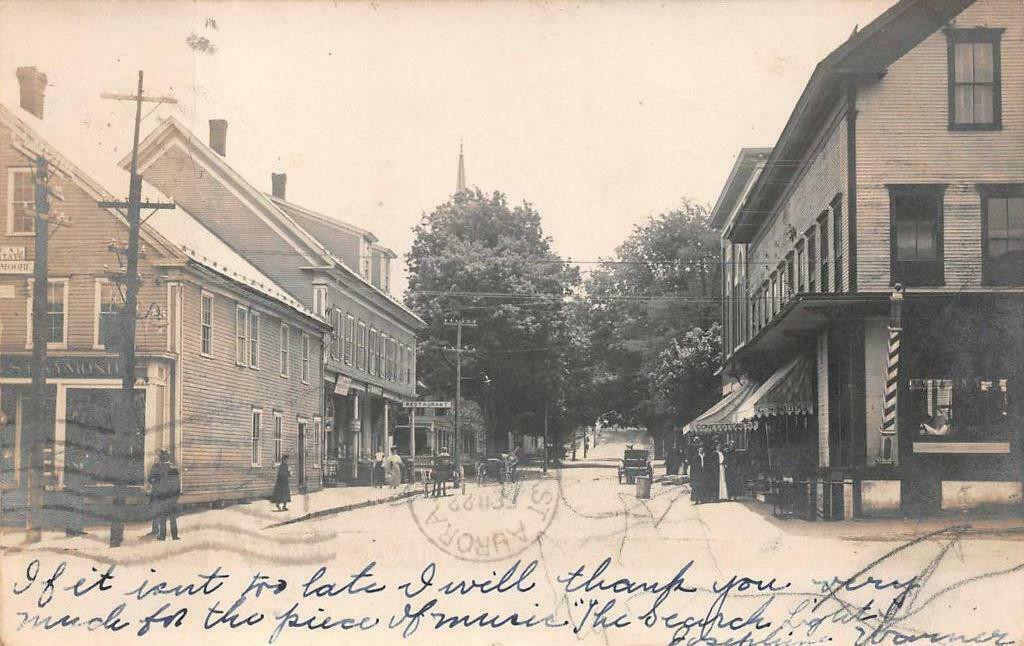 REAL
ESTATE
MOORE
RAYMOND
RESTAURANT
EAST AURORA
FEB 22
If it isnt too late I will thank you very
much for the piece of music "The Search Light
Josephine Warner